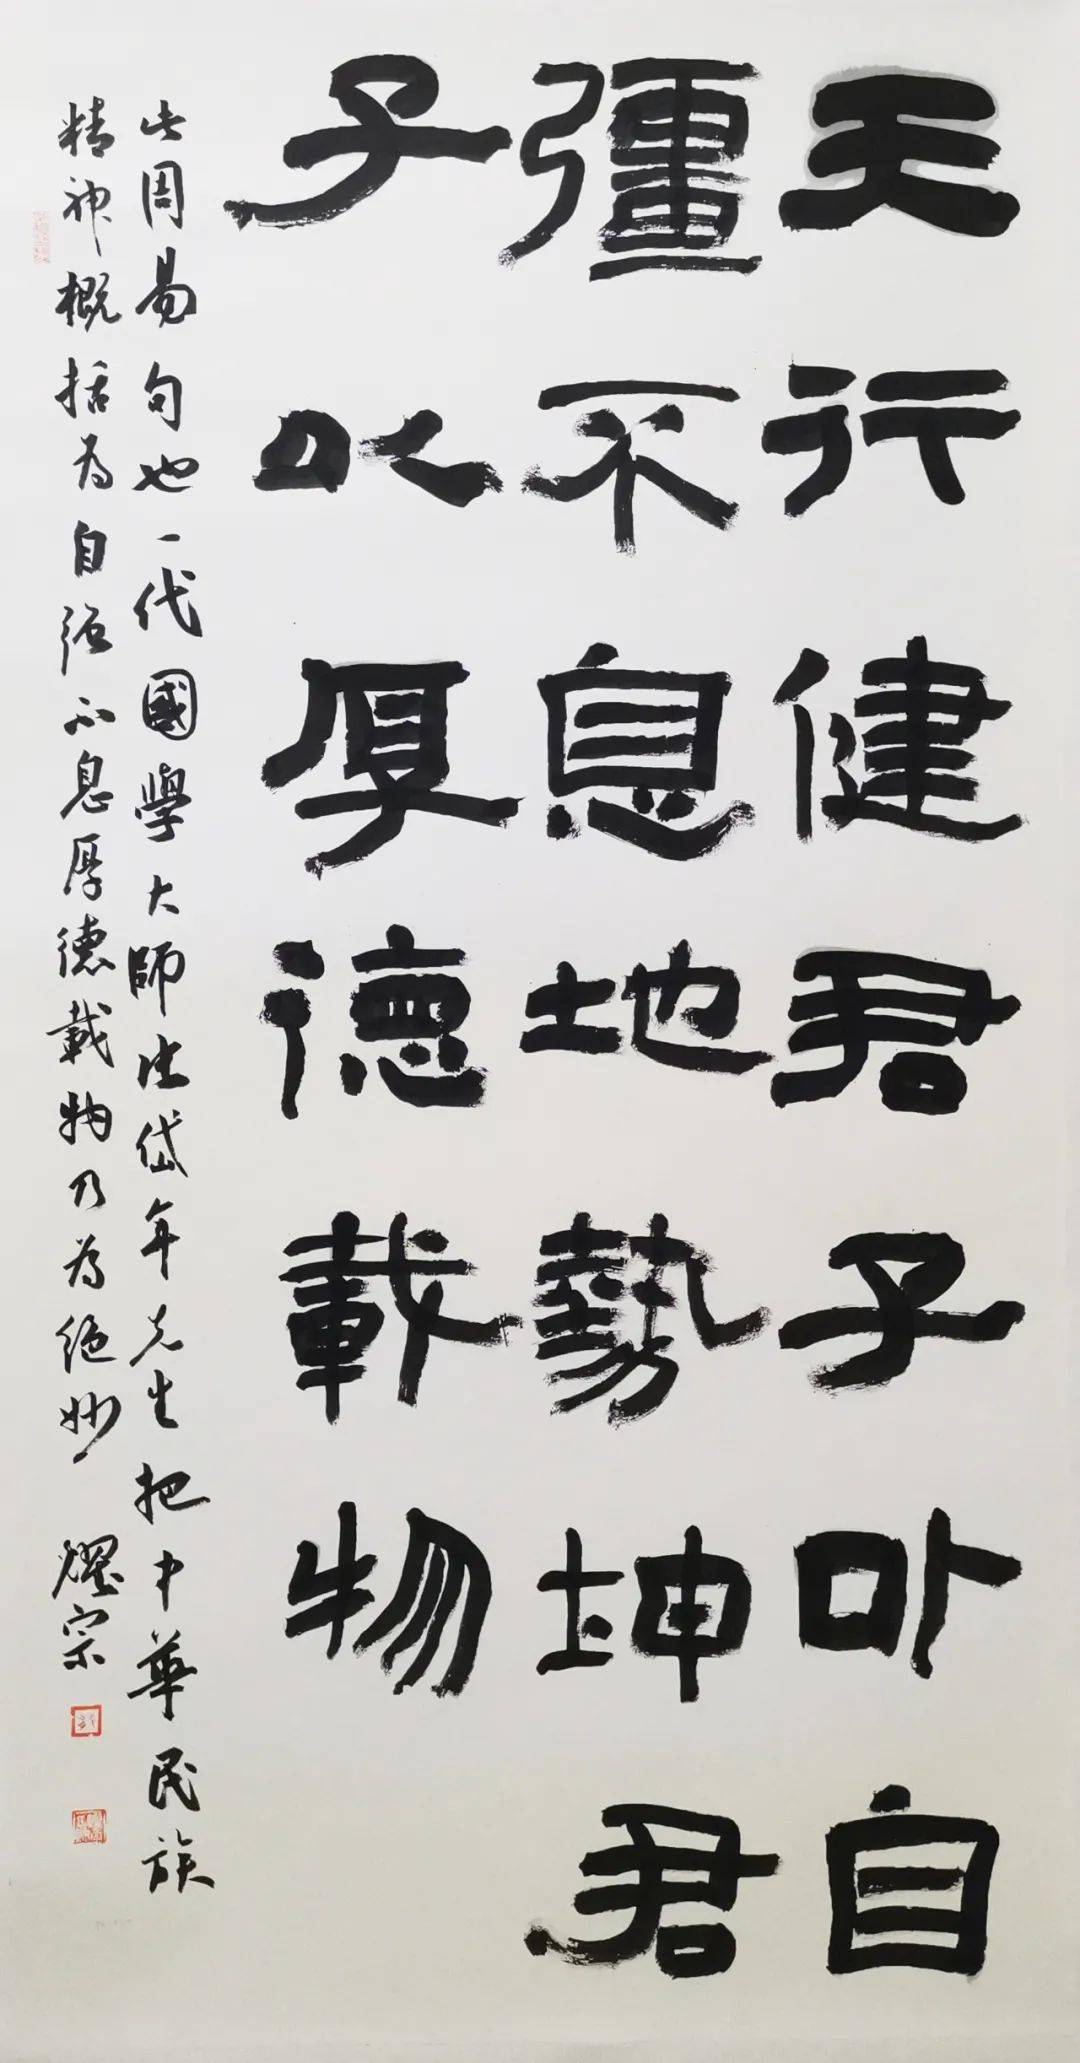 天行健君子以自
彊不息地勢坤君
子以厚德載物
此周易句也一代國學大師张岱年先生把中華民族
精神概括为自强不息厚德載物乃为绝妙 耀宗